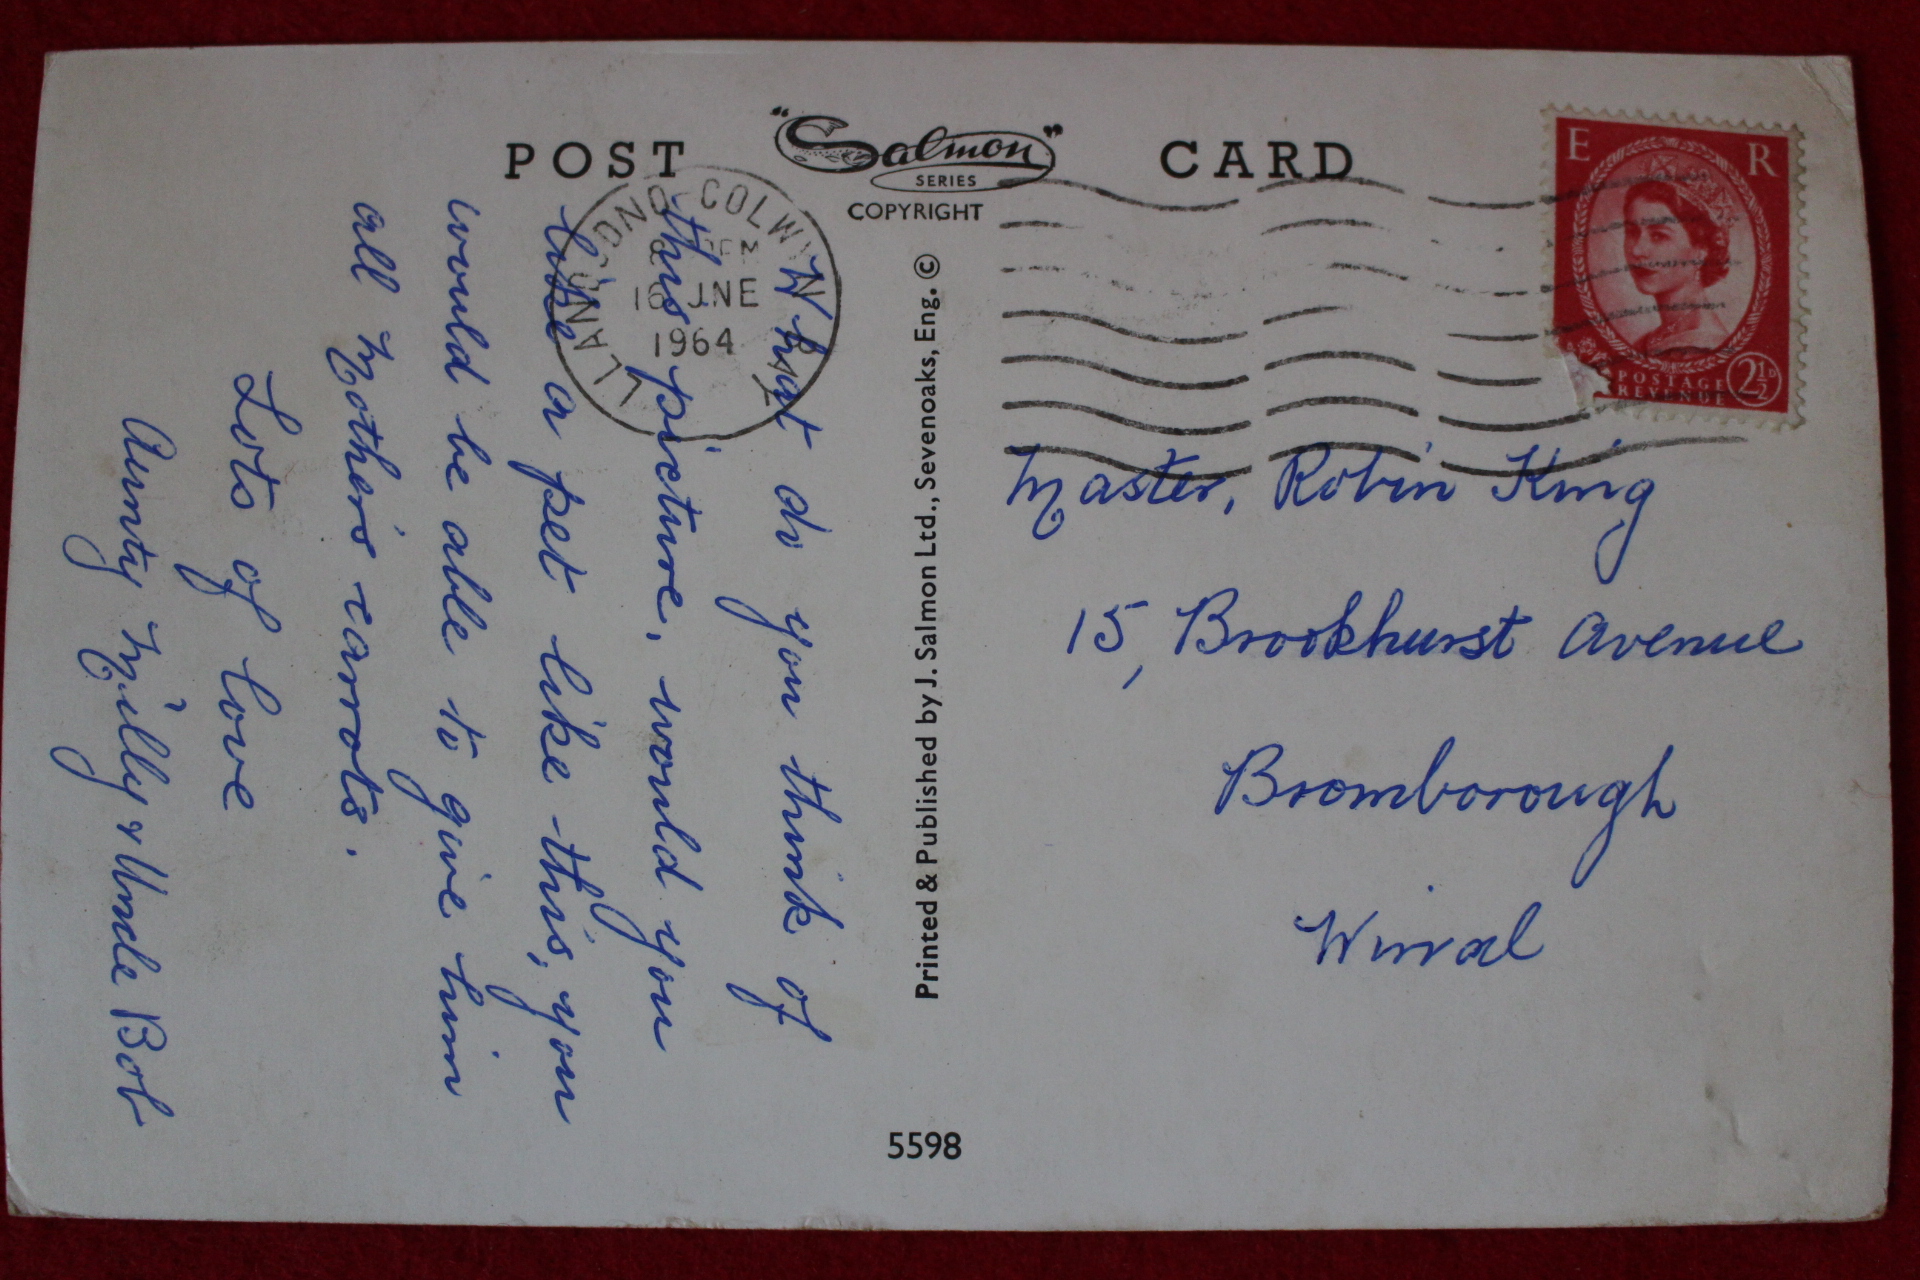 POST "Salmon" CARD
SERIES
COPYRIGHT
E R
POSTAGE
REVENUE
2½D
LLANDUDNO COLWYN BAY
PM
16 JNE
1964
What do you think of
this picture, would you
like a pet like this, you
would be able to give him
all Mothers carrots.
Lots of love
Aunty Milly & Uncle Bob
Printed & Published by J. Salmon Ltd., Sevenoaks, Eng. ©
Master, Robin King
15, Brookhurst Avenue
Bromborough
Wirral
5598